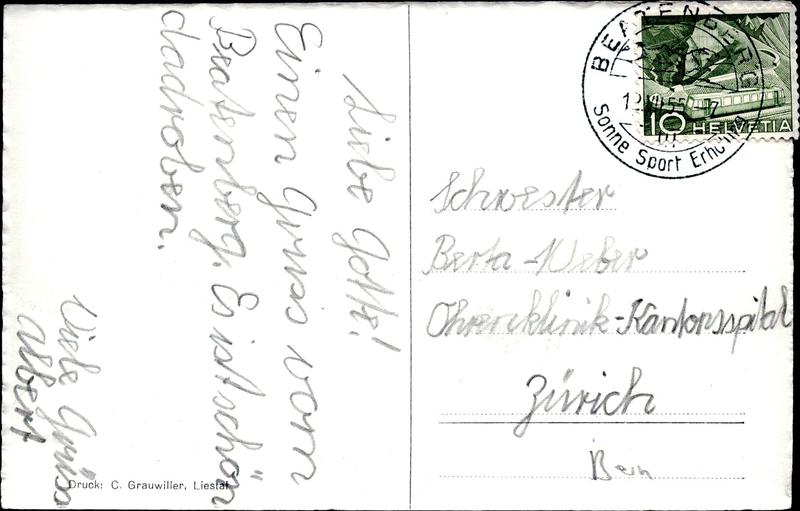 Liebe Gotte!
Einen Gruss vom
Beatenberg. Es ist schön
dadroben.
Viele Grüss
Albert
Druck: C. Grauwiller, Liestal
BEATENBERG
Sonne Sport Erholung
10 HELVETIA
Schwester
Berta-Weber
Ohrenklinik-Kantonsspital
Zürich
Bern